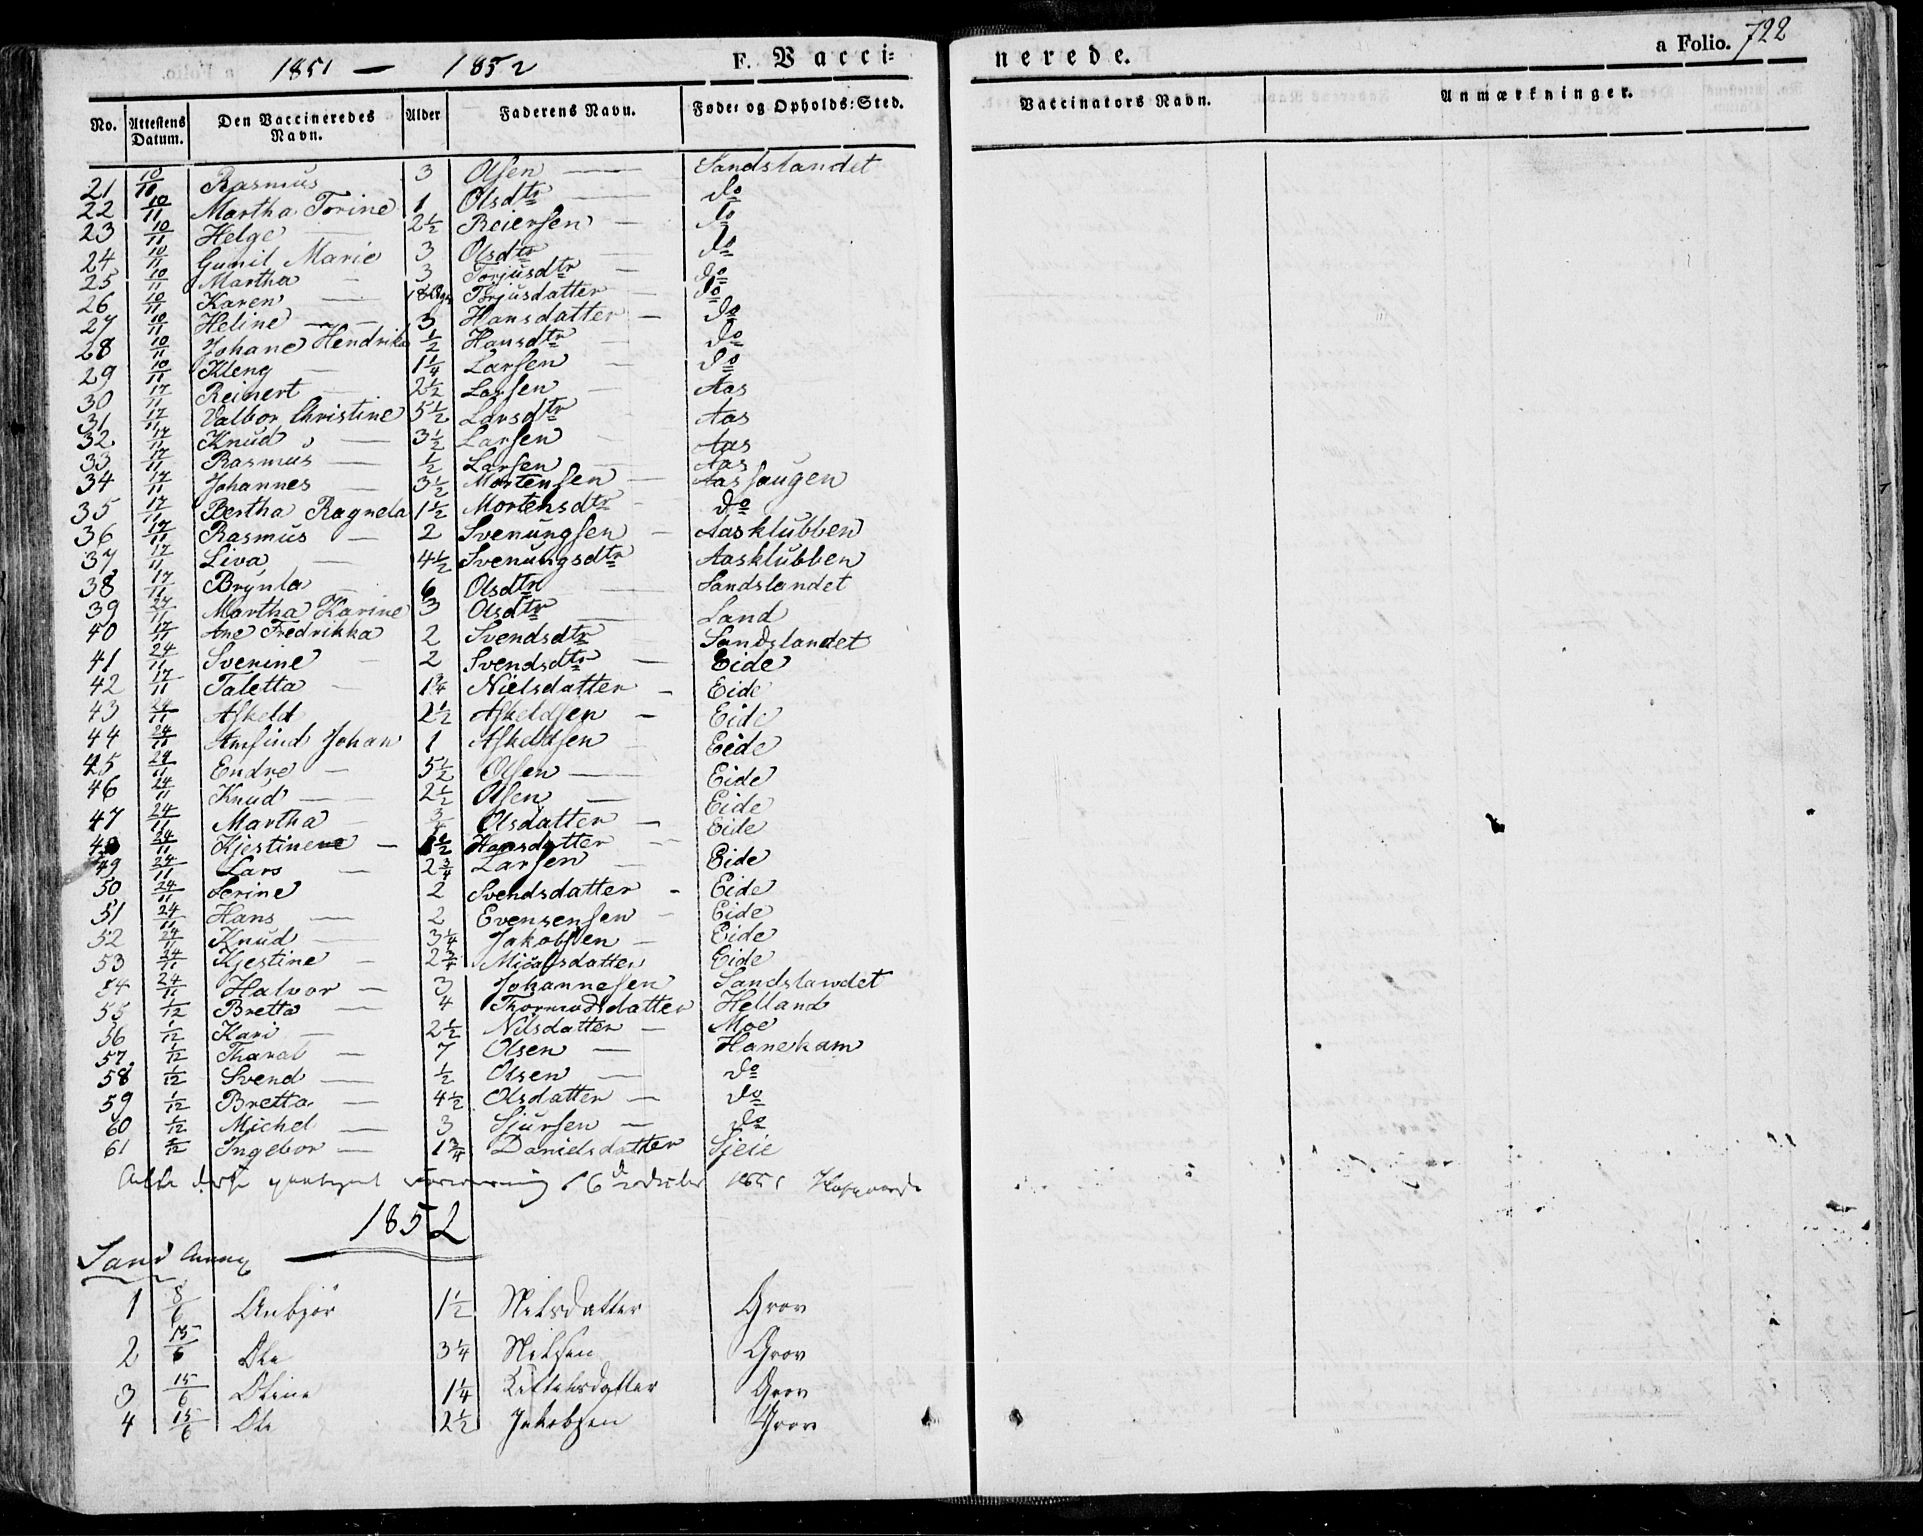 1851 — 1852 F. Vacci=
nerede. a Folio. 722
No. Attestens Datum. Den Vaccineredes Navn. Alder Faderens Navn. Fødet og Opholds=Sted. Vaccinators Navn. Anmærkninger.
21 10/11 Rasmus 3 Olsen — Sandslandet
22 10/11 Martha Torine 1 Olsdtr — do
23 10/11 Helge — 2½ Reiersen — do
24 10/11 Gunil Marie 3 Olsdtr — do
25 10/11 Martha — 3 Torjusdtr — do
26 10/11 Karen — 18 Torjusdatter — do
27 10/11 Heline — 3 Hansdatter — do
28 10/11 Johane Hendrika ½ Hansdtr — do
29 10/11 Kleng — 1¼ Larsen — do
30 17/11 Reinert — 2½ Larsen — Aas
31 17/11 Valbor Christine 5½ Larsdtr Aas
32 17/11 Knud — 3½ Larsen — Aas
33 17/11 Rasmus — ½ Larsen — Aas
34 17/11 Johannes — 3½ Mortensen — Aashaugen
35 17/11 Bertha Ragnela 1½ Mortensdtr — do
36 17/11 Rasmus — 2 Svenungsen — Aasklubben
37 17/11 Liva — 4½ Svenungsdtr Aasklubben
38 17/11 Brynla — 6 Olsdtr — Sandslandet
39 25/11 Martha Karine 3 Olsdtr — Land
40 17/11 Ane Fredrikka 2 Svendsdtr — Sandslandet
41 24/11 Svenine — 2 Svendsdtr — Eide
42 17/11 Taletta — 1¾ Nielsdatter — Eide
43 24/11 Askeld 2½ Askeldsen — Eide
44 24/11 Amfind Johan 1 Askeldsen — Eide
45 24/11 Endre — 5½ Olsen — Eide
46 24/11 Knud — 2½ Olsen — Eide
47 24/11 Martha — ¾ Olsdatter — Eide
48 24/11 Kjestine — 1½ Hansdatter —
49 24/11 Lars — 2¾ Larsen — Eide
50 24/11 Serine 2 Svendsdatter — Eide
51 24/11 Hans — 2 Evensensen — Eide
52 24/11 Knud — 3¼ Jakobsen — Eide
53 24/11 Kjestine — 2¾ Micalsdatter Eide
54 24/11 Halvor — 3 Johannesen Sandslandet
55 1/12 Bretta — 4 Thormodsdatter Helland
56 1/12 Kari — 2½ Nilsdatter — Moe
57 1/12 Tharal — 7 Olsen — Hanekam
58 1/12 Svend — ½ Olsen — do
59 1/12 Bretta — 4½ Olsdatter — do
60 1/12 Michel — 3 Sjursen — do
61 2/12 Ingebor — 1¾ Danielsdatter Sjeie
1852
Sand Annex
1 8/6 Anbjør 1½ Nilsdatter Grov
2 15/6 Ole 3¼ Nilsen Grov
3 15/6 Oline 1¼ Kittelsdatter Grov
4 15/6 Ole 2½ Jakobsen Grov